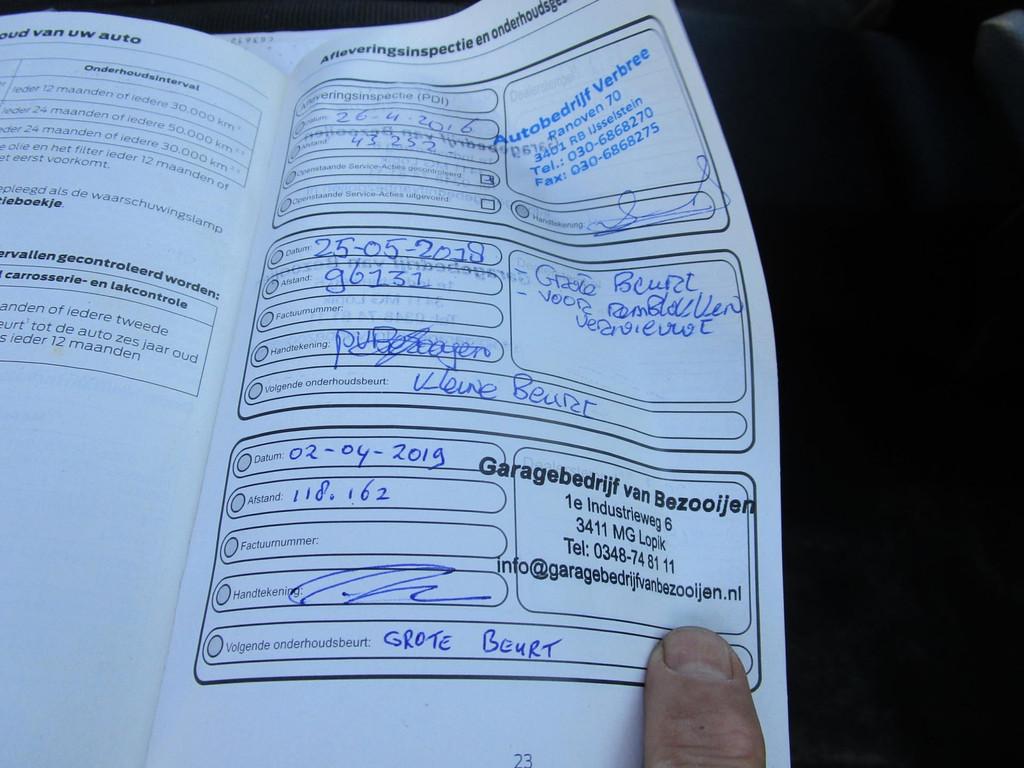 oud van uw auto
Onderhoudsinterval
Ieder 12 maanden of iedere 30.000 km
Ieder 24 maanden of iedere 50.000 km
eder 24 maanden of iedere 30.000 km
e olie en het filter ieder 12 maanden of
et eerst voorkomt.
epleegd als de waarschuwingslamp
tieboekje.
ervallen gecontroleerd worden:
carrosserie- en lakcontrole
anden of iedere tweede
eurt tot de auto zes jaar oud
s ieder 12 maanden
Afleveringsinspectie en onderhoudsges
Afleveringsinspectie (PDI)
Datum: 26-4-2016
Afstand: 43.252
Openstaande Service-Acties gecontroleerd:
Openstaande Service-Acties uitgevoerd:
Autobedrijf Verbree
Panoven 70
3401 RB IJsselstein
Tel.: 030-6868270
Fax: 030-6868275
Handtekening:
Datum: 25-05-2018
Afstand: 96131
Factuurnummer:
Handtekening:
Volgende onderhoudsbeurt: Kleine Beurt
- Grote Beurt
- voor remblokken
vernieuwt
Datum: 02-04-2019
Afstand: 118.162
Factuurnummer:
Handtekening:
Volgende onderhoudsbeurt: GROTE BEURT
Garagebedrijf van Bezooijen
1e Industrieweg 6
3411 MG Lopik
Tel: 0348-74 81 11
info@garagebedrijfvanbezooijen.nl
23